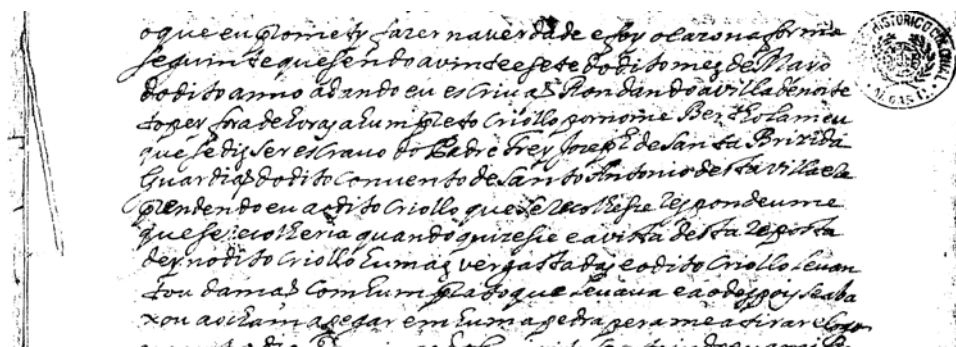 o que eu promety fazer na verdade e foy o cazo na forma
seguinte que sendo a vinte e sete do dito mez de Mayo
do dito anno adando eu escrivaõ Rondando a villa de noite
topey fora de horas a hum preto Criollo por nome Bertholameu
que se dis ser escravo do Padre Frey Joseph de Santa Brizida
Guardiaõ do dito Convento de Santo Antonio desta villa e re
prendendo eu ao dito Criollo que se recolhesse respondeume
que se recolheria quando quizesse e a vista desta reposta
dey no dito Criollo humas vergastadas e o dito Criollo levan
tou da maõ Com hum pao que levava e ao despois se aba
xou ao cham a pegar em huma pedra pera me atirar e logo
HISTORICO COLONIAL